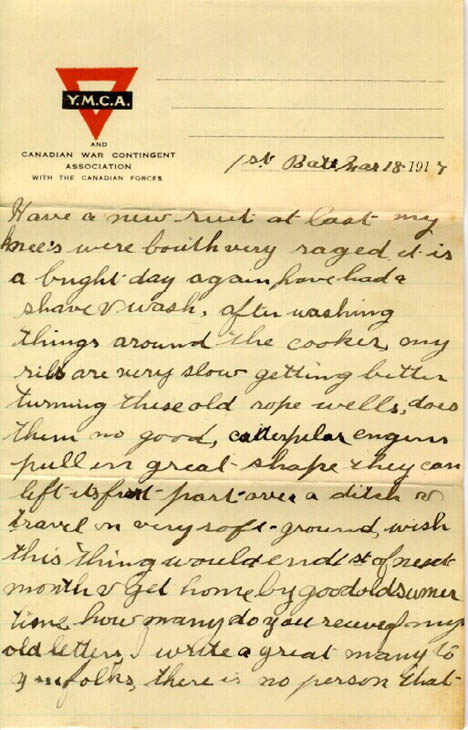 Y.M.C.A.
AND
CANADIAN WAR CONTINGENT
ASSOCIATION
WITH THE CANADIAN FORCES
1st Batt Mar 18 1917
Have a new suit at last my
knee's were bouth very raged, it is
a bright day again, have had a
shave & wash, after washing
things around the cooker, my
ribs are very slow getting better
turning these old rope wells, does
them no good, catterpilar engins
pull in great shape they can
lift its frunt part over a ditch &
travel on very soft ground, wish
this thing would end 1st of next
month & get home by good old sumer
time, how many do you receive of my
old letters, I write a great many to
folks, there is no person that